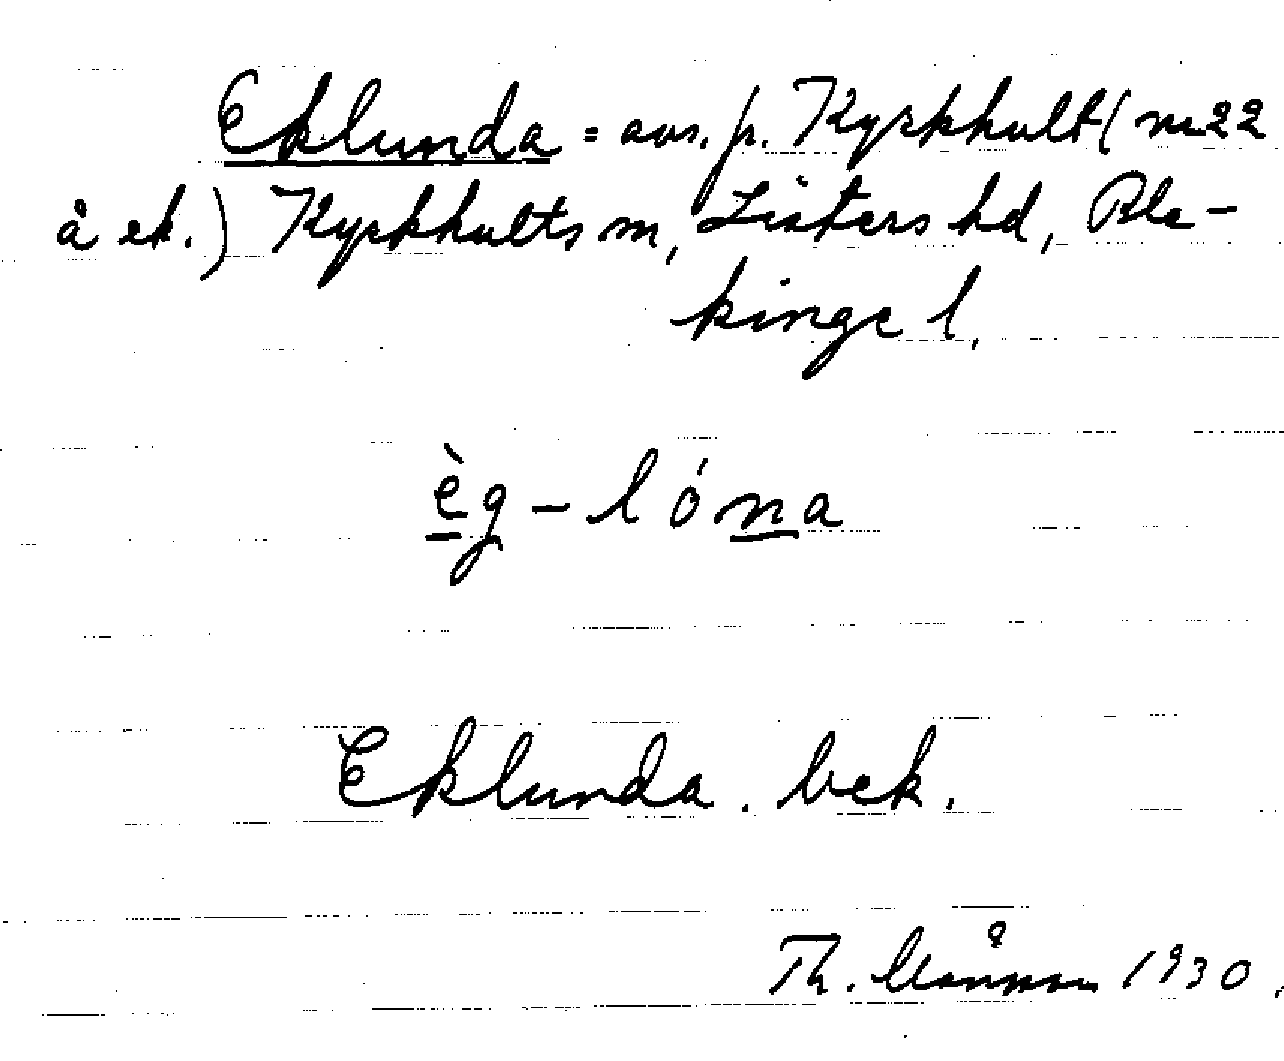 Eklunda = avs. fr. Kyrkhult (n:r 22
å ek.) Kyrkhults sn, Listers hd, Ble-
kinge l.
èg-lóna
Eklunda. bek.
Th. Månsson 1930.